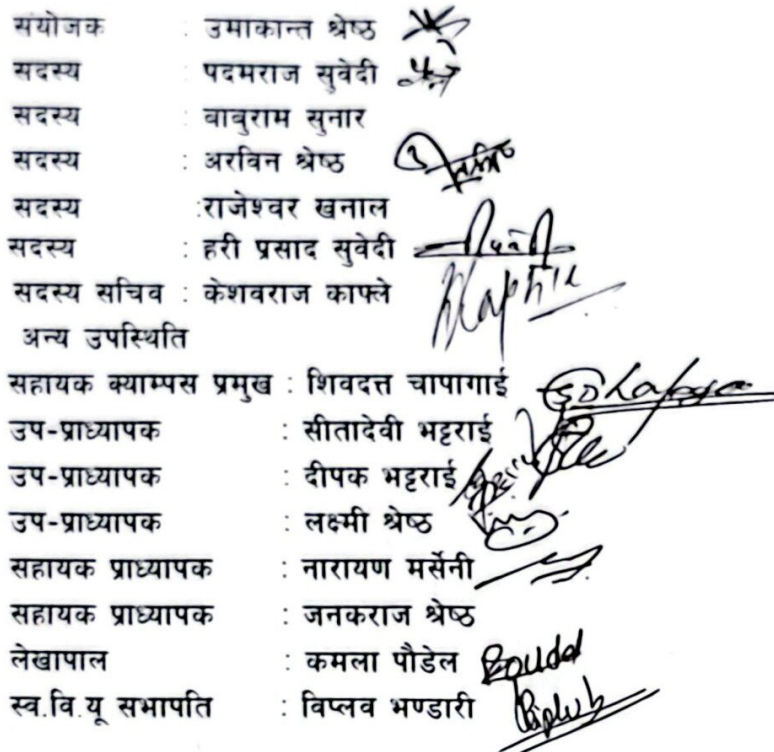 संयोजक : उमाकान्त श्रेष्ठ
सदस्य : पदमराज सुवेदी
सदस्य : बाबुराम सुनार
सदस्य : अरविन श्रेष्ठ
सदस्य :राजेश्वर खनाल
सदस्य : हरी प्रसाद सुवेदी
सदस्य सचिव : केशवराज काफ्ले
अन्य उपस्थिति
सहायक क्याम्पस प्रमुख : शिवदत्त चापागाई
उप-प्राध्यापक : सीतादेवी भट्टराई
उप-प्राध्यापक : दीपक भट्टराई
उप-प्राध्यापक : लक्ष्मी श्रेष्ठ
सहायक प्राध्यापक : नारायण मर्सेनी
सहायक प्राध्यापक : जनकराज श्रेष्ठ
लेखापाल : कमला पौडेल
स्व.वि.यू सभापति : विप्लव भण्डारी